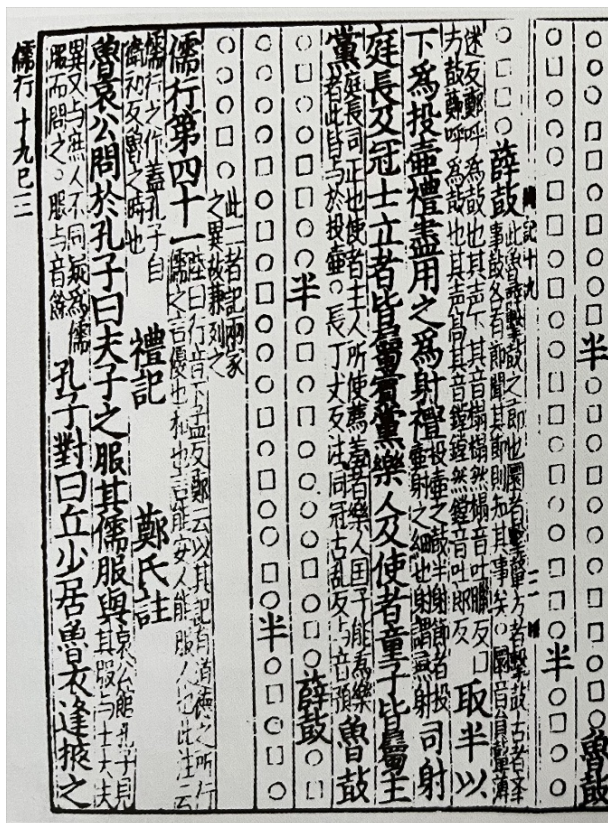 半 魯鼓
半
薛鼓 此魯薛擊鼓之節也圜者擊鼙方者擊鼓古者舉
事鼓各有節聞其節則知其事矣○圜音員鼙薄
迷反鄭呼爲鼙也其声下其音榻榻然榻音吐臘反口
方鼓鄭呼爲鼓也其声高其音鏜鏜然鏜音吐郎反 取半以
下爲投壺禮盡用之爲射禮 投壺之鼓半射節者投
壺射之細也射謂燕射 司射
庭長及冠士立者皆屬賓黨樂人及使者童子皆屬主
黨 庭長司正也使者主人所使薦羞者樂人国子能為樂
者此皆与於投壺○長丁丈反注同冠古乱反与音預 魯鼓
半 薛鼓
半
此二者記兩家
之異故兼列之
儒行第四十一 陸曰行音下孟反鄭云以其記有道德之所行
儒之言優也和也言能安人能服人也此注云
儒行之作蓋孔子自
衛初反魯之時也 禮記 鄭氏註
魯哀公問於孔子曰夫子之服其儒服與 哀公館孔子見
其服与士大夫
異又与庶人不同疑為儒
服而問之○服与音餘 孔子對曰丘少居魯衣逢掖之
儒行 十九巳二